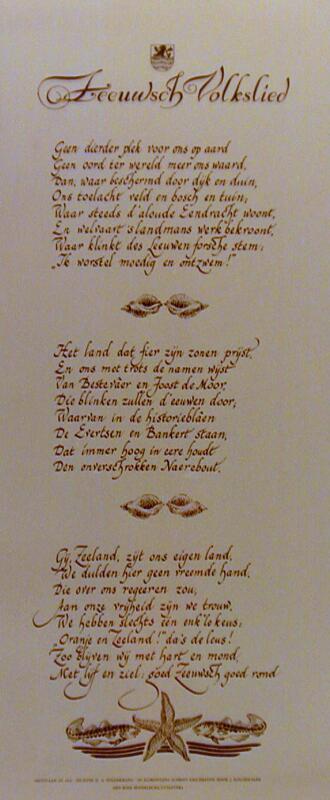 Zeeuwsch Volkslied
Geen dierder plek voor ons op aard
Geen oord ter wereld meer ons waard,
Dan, waar beschermd door dijk en duin,
Ons toelacht veld en bosch en tuin;
Waar steeds d'aloude Eendracht woont,
En welvaart 's landmans werk bekroont,
Waar klinkt des Leeuwen forsche stem:
„Ik worstel moedig en ontzwem!"
Het land dat fier zijn zonen prijst,
En ons met trots de namen wijst
Van Bestevaer en Joost de Moor,
Die blinken zullen d'eeuwen door;
Waarvan in de historieblâen
De Evertsen en Bankert staan,
Dat immer hoog in eere houdt
Den onverschrokken Naerebout.
Gij, Zeeland, zijt ons eigen land,
We dulden hier geen vreemde hand,
Die over ons regeeren zou,
Aan onze vrijheid zijn we trouw.
We hebben slechts één enk'le keus:
„Oranje en Zeeland!" da's de leus!
Zoo blijven wij met hart en mond,
Met lijf en ziel: goed Zeeuwsch goed rond